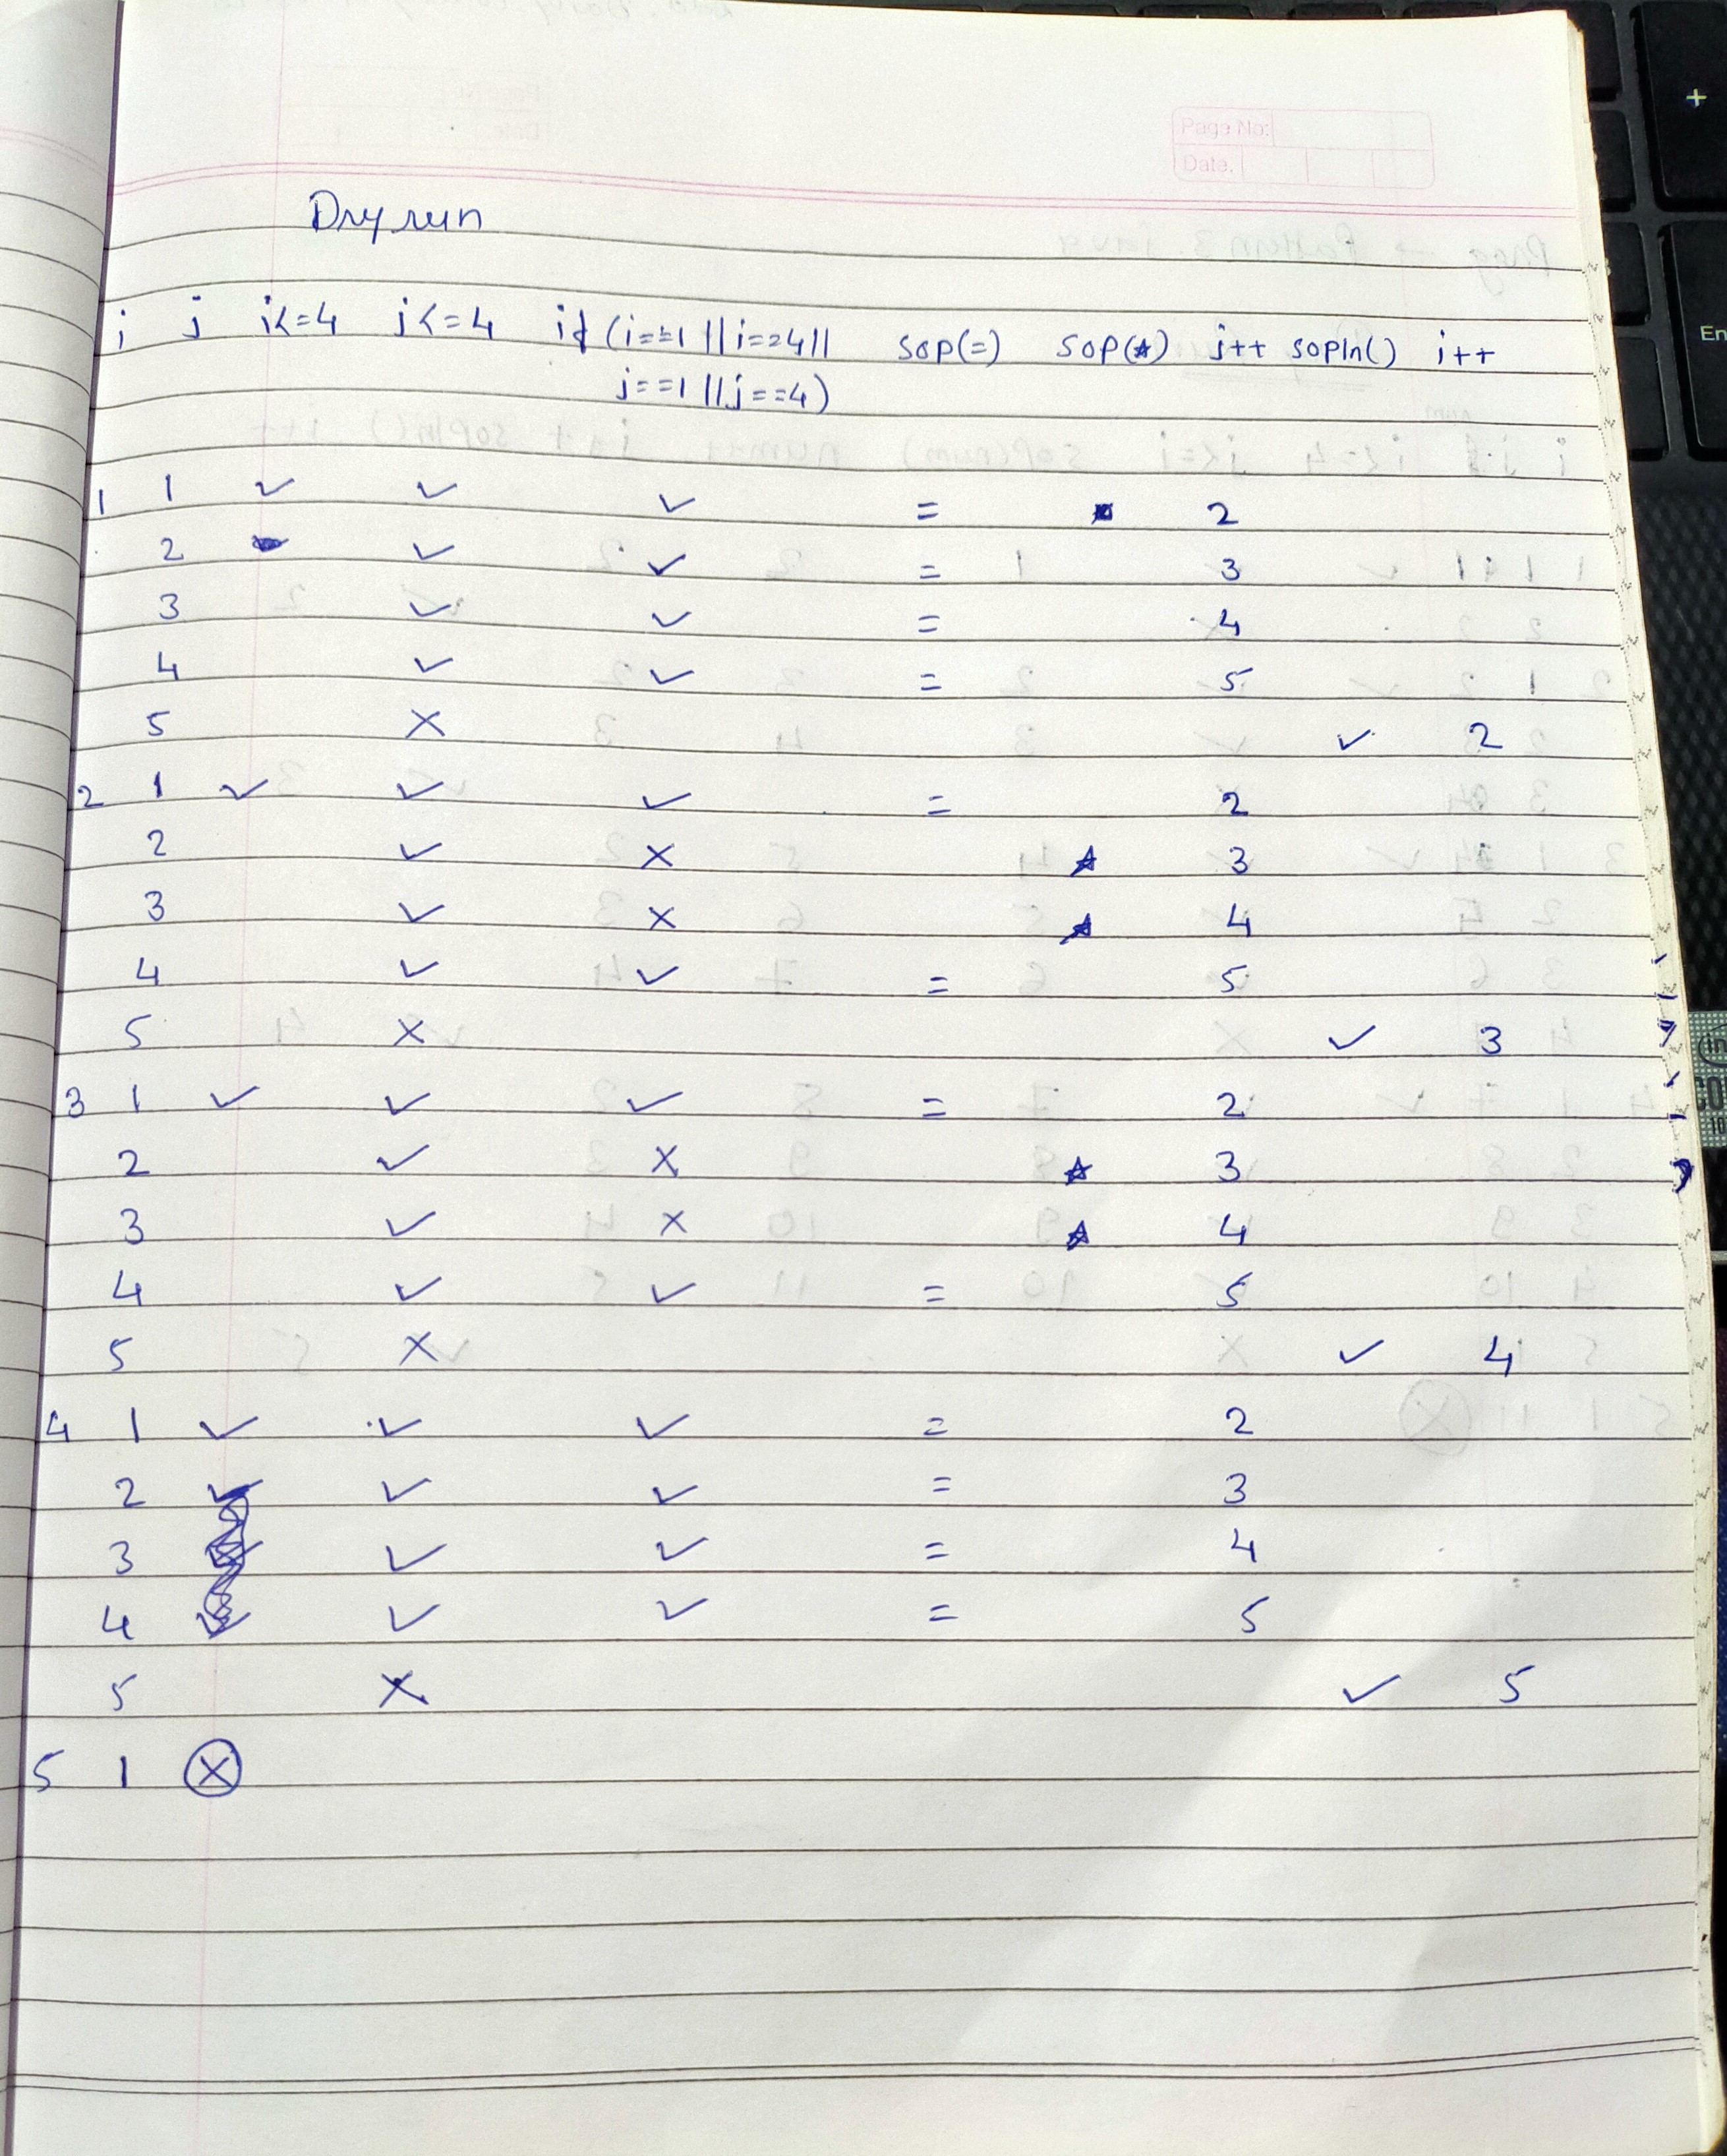 Page No:
Date.
Dry run
i j i<=4 j<=4 if (i==1 || i==4 || sop(=) sop(★) j++ sopln() i++
j==1 || j==4)
1 1 ✓ ✓ ✓ = 2
2 ✓ ✓ = 3
3 ✓ ✓ = 4
4 ✓ ✓ = 5
5 × ✓ 2
2 1 ✓ ✓ ✓ = 2
2 ✓ × ★ 3
3 ✓ × ★ 4
4 ✓ ✓ = 5
5 × ✓ 3
3 1 ✓ ✓ ✓ = 2
2 ✓ × ★ 3
3 ✓ × ★ 4
4 ✓ ✓ = 5
5 × ✓ 4
4 1 ✓ ✓ ✓ = 2
2 ✓ ✓ = 3
3 ✓ ✓ = 4
4 ✓ ✓ = 5
5 × ✓ 5
5 1 ⓧ
+
En